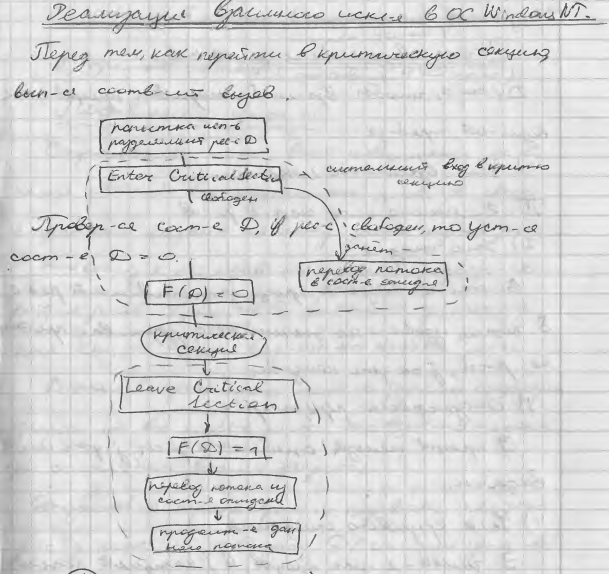 Реализация взаимного искл-я в ОС Windows NT.
Перед тем, как перейти в критическую секцию,
вып-ся соотв-ий вызов.
попытка исп-ь
разделяемый рес-с D
Enter Critical Section
системный вход в критич
секцию
свободен
Провер-ся сост-е D, if рес-с свободен, то уст-ся
занят
сост-е D = 0.
перевод потока
в сост-е ожид-я
F(D) = 0
критическая
секция
Leave Critical
Section
F(D) = 1
перевод потока из
сост-я ожидания
продолж-е дан
ного потока